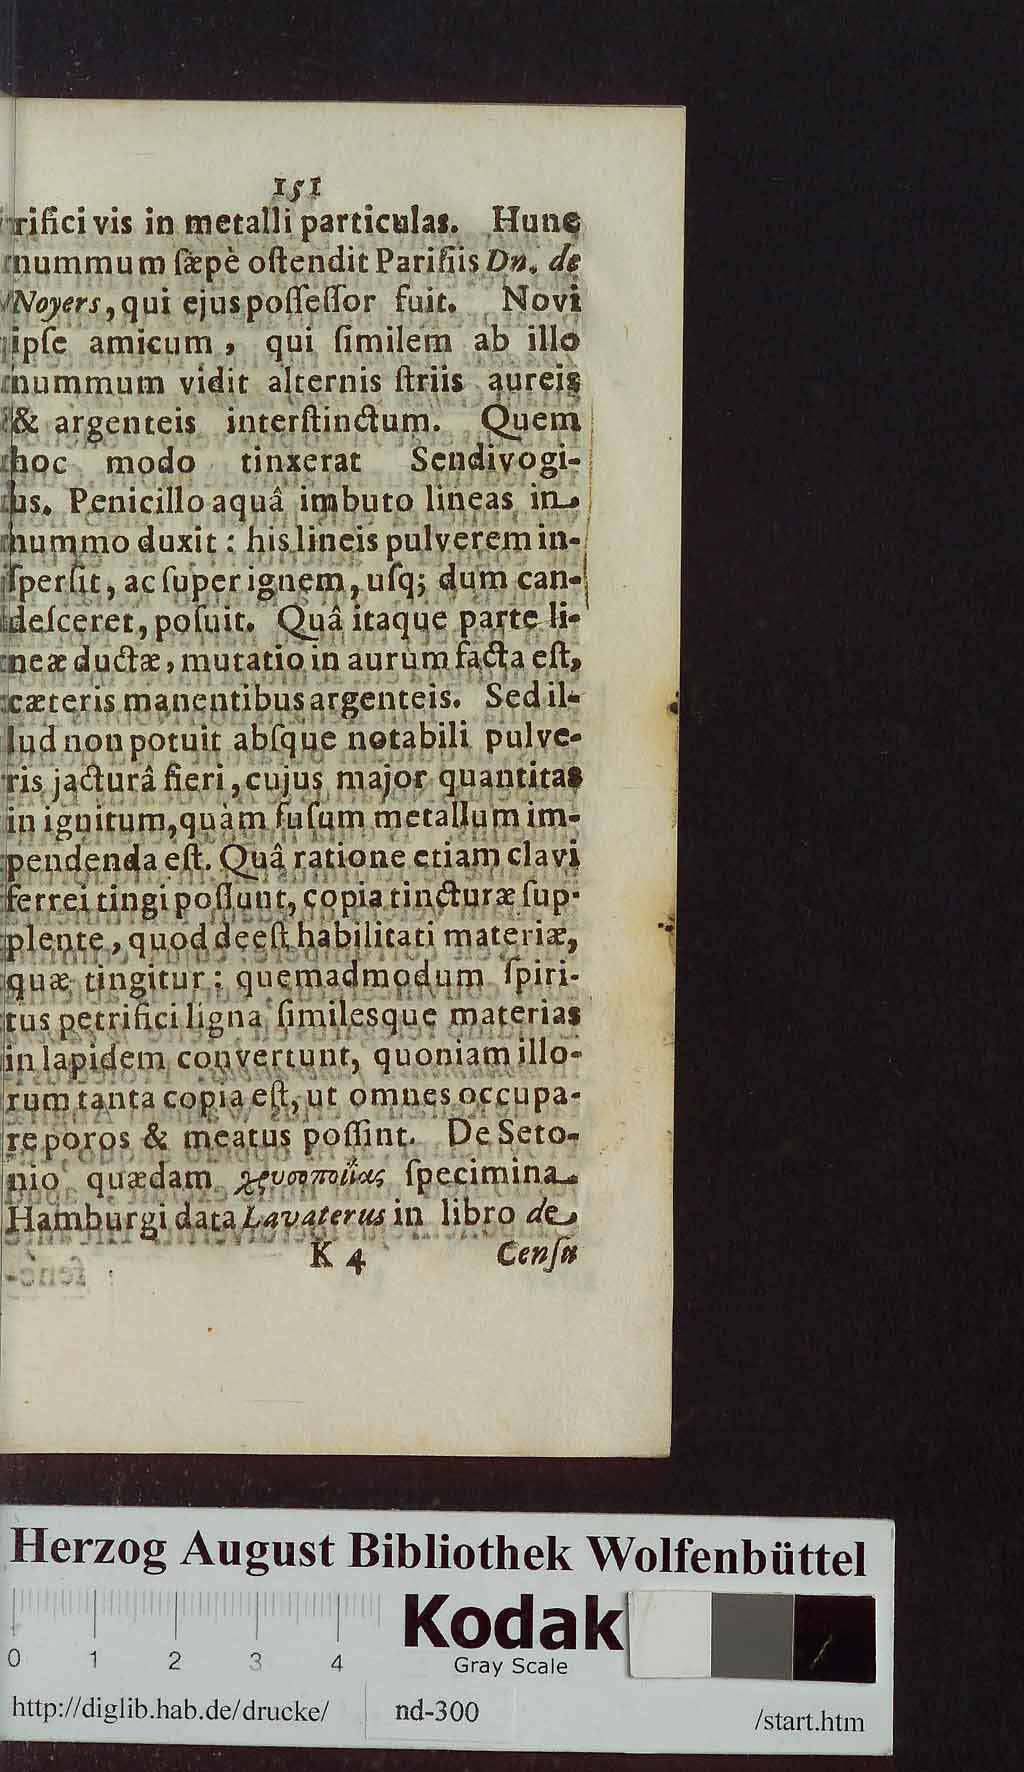 151
rifici vis in metalli particulas. Hunc
nummum ſæpè oſtendit Pariſiis Dn. de
Noyers, qui ejus poſſeſſor fuit. Novi
ipſe amicum, qui ſimilem ab illo
nummum vidit alternis ſtriis aureis
& argenteis interſtinctum. Quem
hoc modo tinxerat Sendivogi-
us. Penicillo aquâ imbuto lineas in
nummo duxit: his lineis pulverem in-
ſperſit, ac ſuper ignem, uſq; dum can-
deſceret, poſuit. Quâ itaque parte li-
neæ ductæ, mutatio in aurum facta eſt,
cæteris manentibus argenteis. Sed il-
lud non potuit abſque notabili pulve-
ris jacturâ fieri, cujus major quantitas
in ignitum, quàm fuſum metallum im-
pendenda eſt. Quâ ratione etiam clavi
ferrei tingi poſſunt, copia tincturæ ſup-
plente, quod deeſt habilitati materiæ,
quæ tingitur: quemadmodum ſpiri-
tus petrifici ligna ſimilesque materias
in lapidem convertunt, quoniam illo-
rum tanta copia eſt, ut omnes occupa-
re poros & meatus poſſint. De Seto-
nio quædam χρυσοποιΐας ſpecimina
Hamburgi data Lavaterus in libro de
K 4 Cenſu
Herzog August Bibliothek Wolfenbüttel
Kodak
0 1 2 3 4
Gray Scale
http://diglib.hab.de/drucke/ nd-300 /start.htm